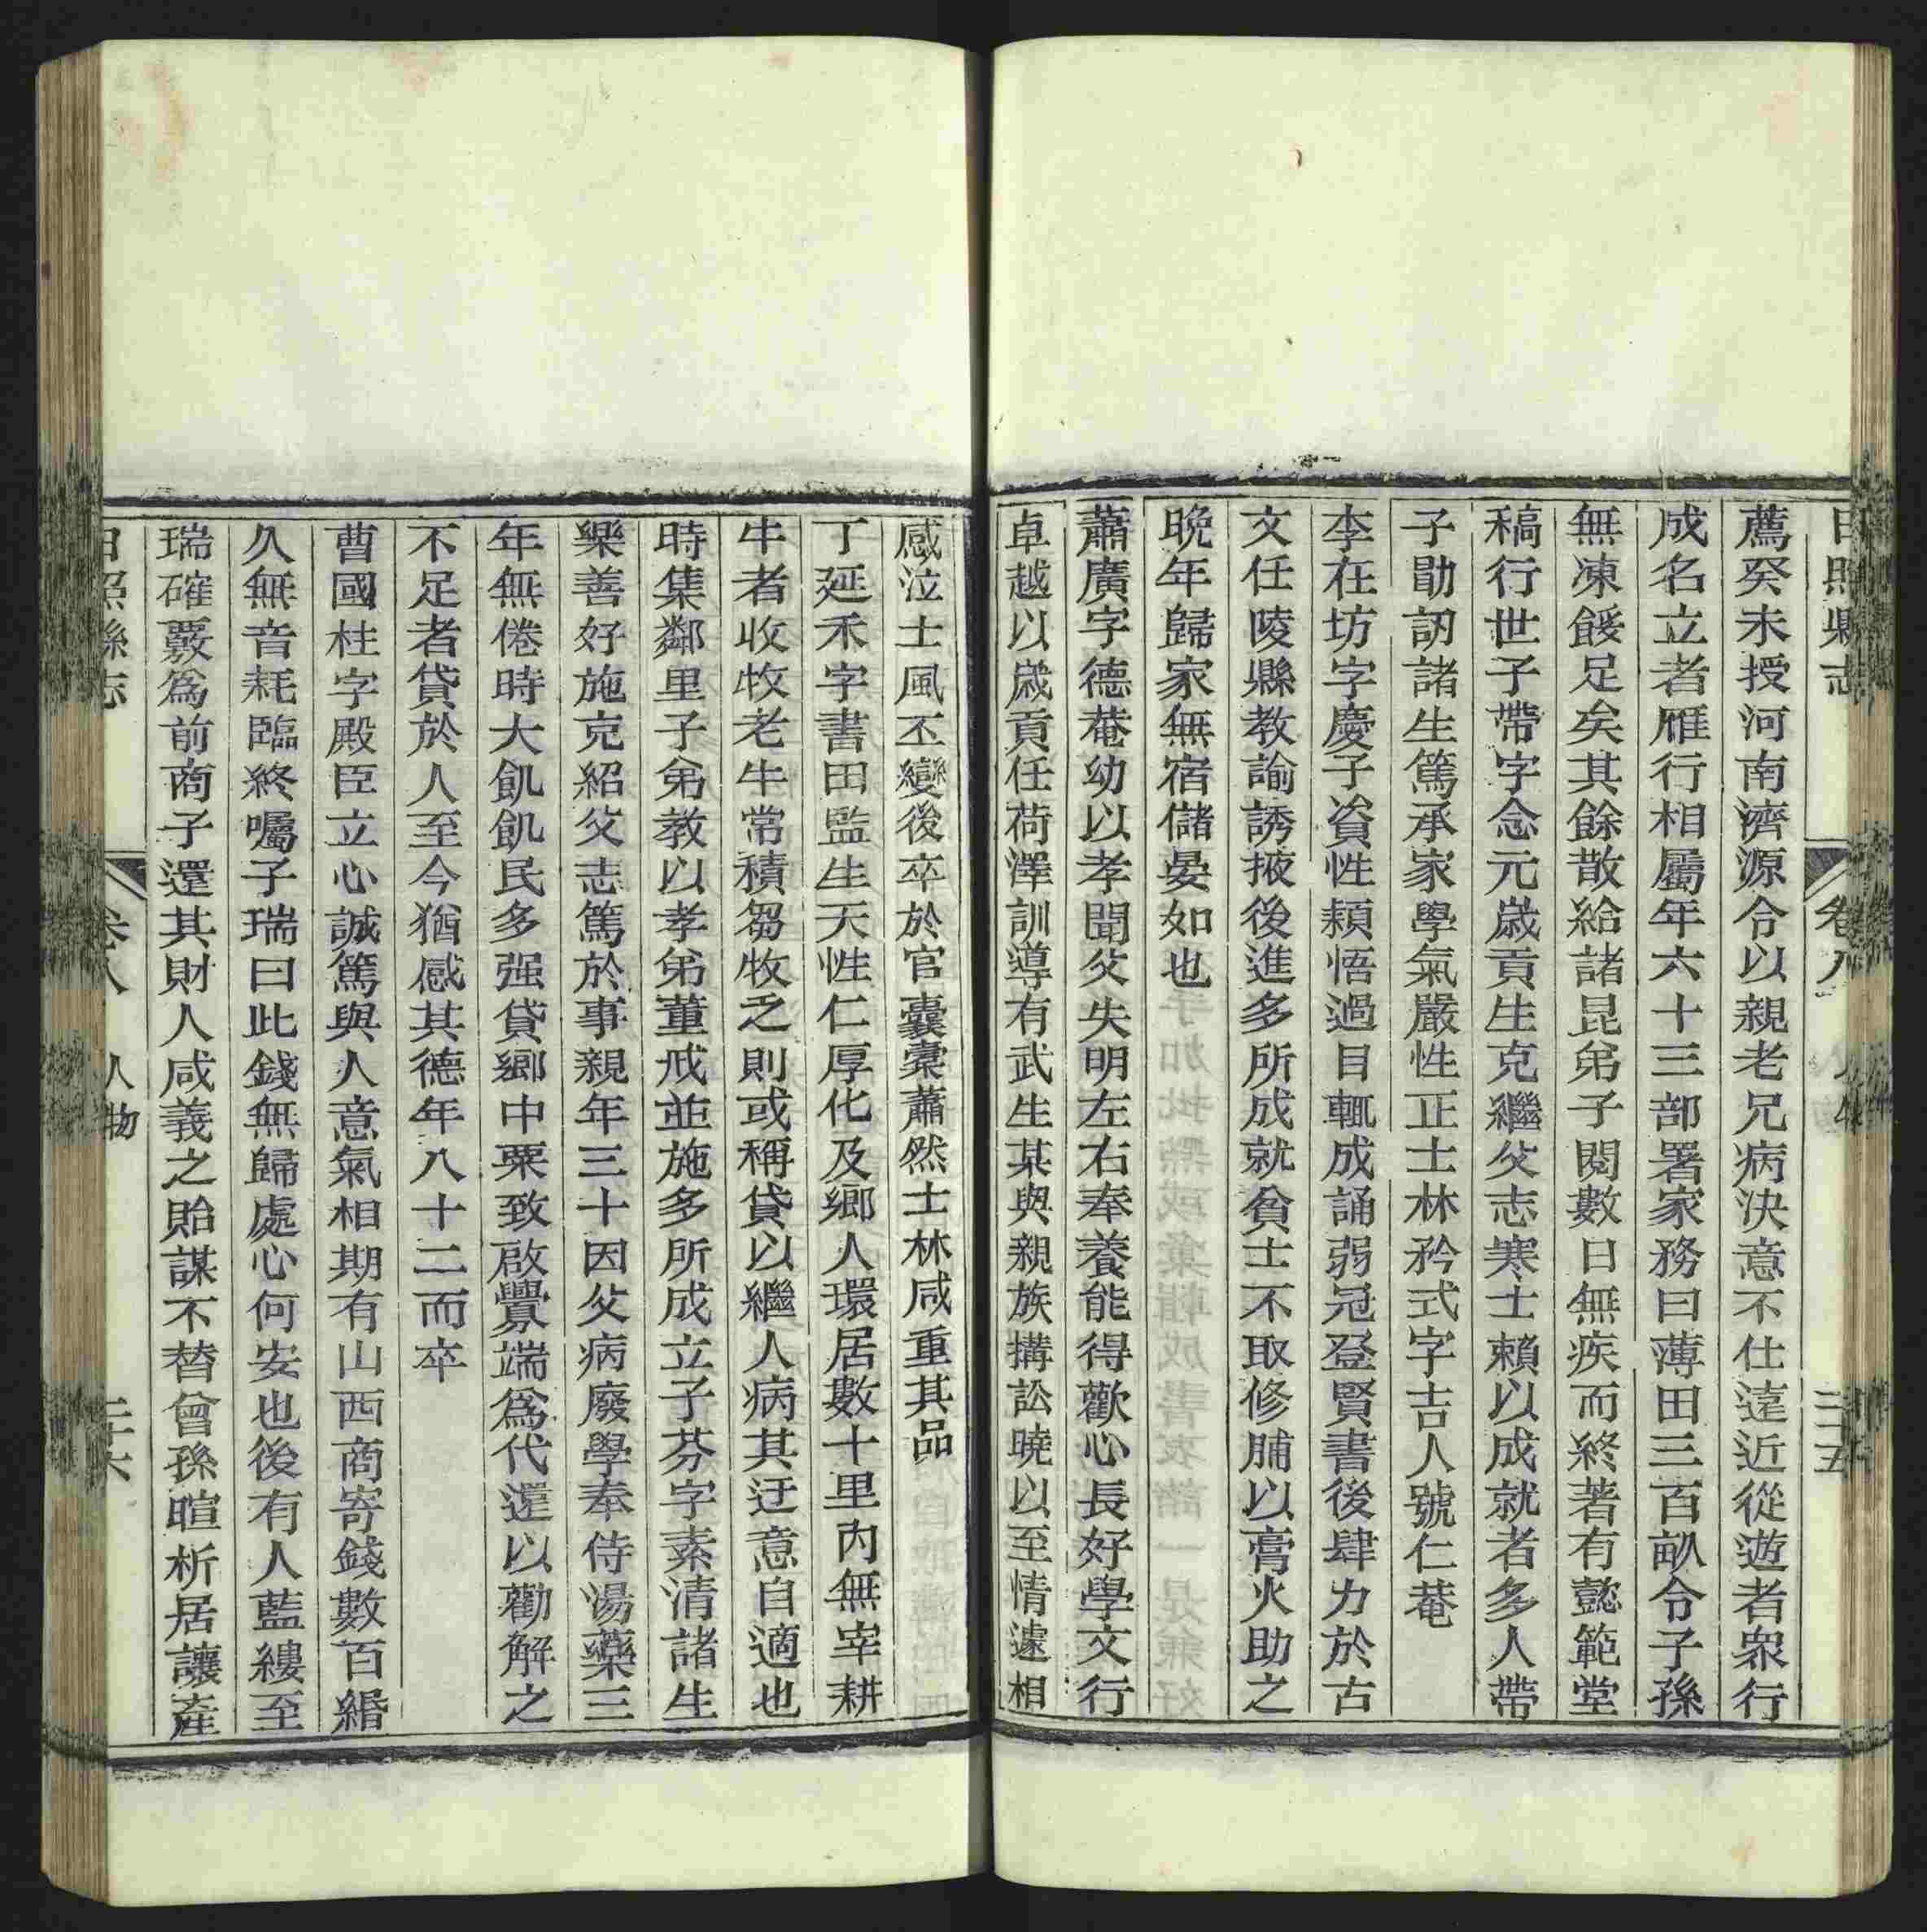 日照縣志 卷八 人物 三十五
薦癸未授河南濟源令以親老兄病決意不仕遠近從遊者衆行
成名立者雁行相屬年六十三部署家務曰薄田三百畝令子孫
無凍餒足矣其餘散給諸昆弟子閱數日無疾而終著有懿範堂
稿行世子帶字念元歲貢生克繼父志寒士賴以成就者多人帶
子勖訒諸生篤承家學氣嚴性正士林矜式字吉人號仁菴
李在坊字慶子資性穎悟過目輒成誦弱冠登賢書後肆力於古
文任陵縣教諭誘掖後進多所成就貧士不取修脯以膏火助之
晚年歸家無宿儲晏如也
蕭廣字德菴幼以孝聞父失明左右奉養能得歡心長好學文行
卓越以歲貢任荷澤訓導有武生某與親族搆訟曉以至情遽相
感泣士風丕變後卒於官囊橐蕭然士林咸重其品
丁延禾字書田監生天性仁厚化及鄉人環居數十里內無宰耕
牛者收牧老牛常積芻牧乏則或稱貸以繼人病其迂意自適也
時集鄰里子弟教以孝弟董戒並施多所成立子芬字素清諸生
樂善好施克紹父志篤於事親年三十因父病廢學奉侍湯藥三
年無倦時大飢飢民多强貸鄉中粟致啟釁端爲代還以勸解之
不足者貸於人至今猶感其德年八十二而卒
曹國柱字殿臣立心誠篤與人意氣相期有山西商寄錢數百緡
久無音耗臨終囑子瑞曰此錢無歸處心何安也後有人藍縷至
瑞確覈爲前商子還其財人咸義之貽謀不替曾孫暄析居讓產
日照縣志 卷八 人物 三十六